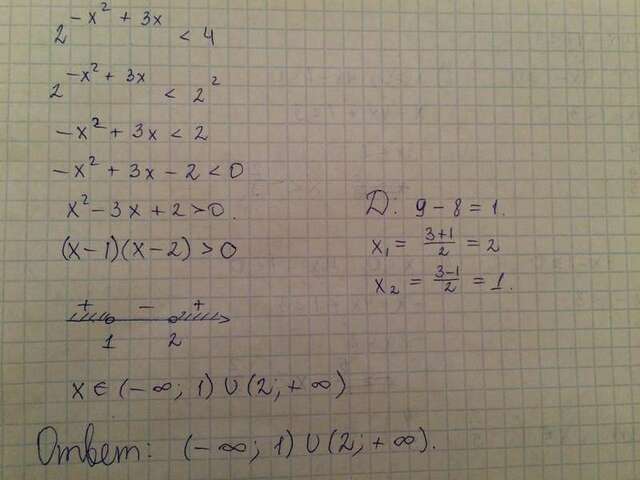 2^(-x² + 3x) < 4
2^(-x² + 3x) < 2²
-x² + 3x < 2
-x² + 3x - 2 < 0
x² - 3x + 2 > 0.
(x-1)(x-2) > 0
Д: 9 - 8 = 1.
x₁ = (3+1)/2 = 2
x₂ = (3-1)/2 = 1.
+ - +
1 2
x ∈ (-∞; 1) ∪ (2; +∞)
Ответ: (-∞; 1) ∪ (2; +∞).